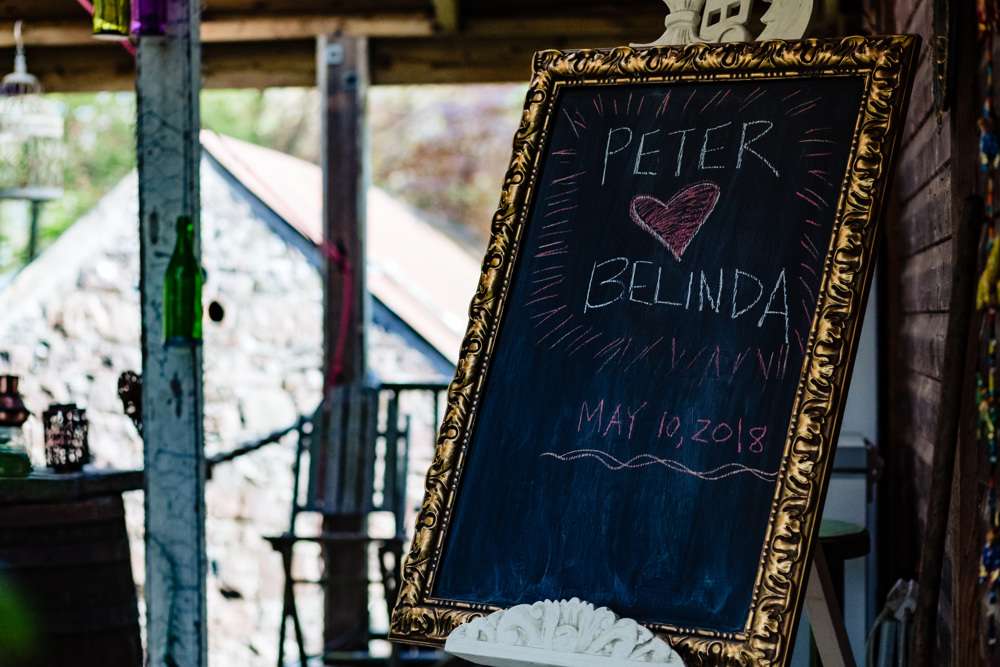 PETER
BELINDA
MAY 10, 2018